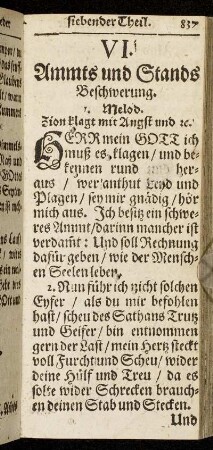 siebender Theil. 837
VI.
Ammts und Stands
Beschwerung.
Melod.
Zion klagt mit Angst und ꝛc.
HERR mein GOTT ich
muß es klagen / und be-
kennen rund und her-
aus / wer anthut Leyd und
Plagen / sey mir gnädig / hör
mich aus. Ich besitz ein schwe-
res Ammt / darinn mancher ist
verdamt: Und soll Rechnung
dafür geben / wie der Mensch-
en Seelen leben.
2. Nun führ ich zicht solchen
Eyfer / als du mir befohlen
hast / scheu des Sathans Trutz
und Geifer / bin entnommen
gern der Last / mein Hertz steckt
voll Furcht und Scheu / wider
deine Hülf und Treu / da es
solte wider Schrecken brauch-
en deinen Stab und Stecken.
Und